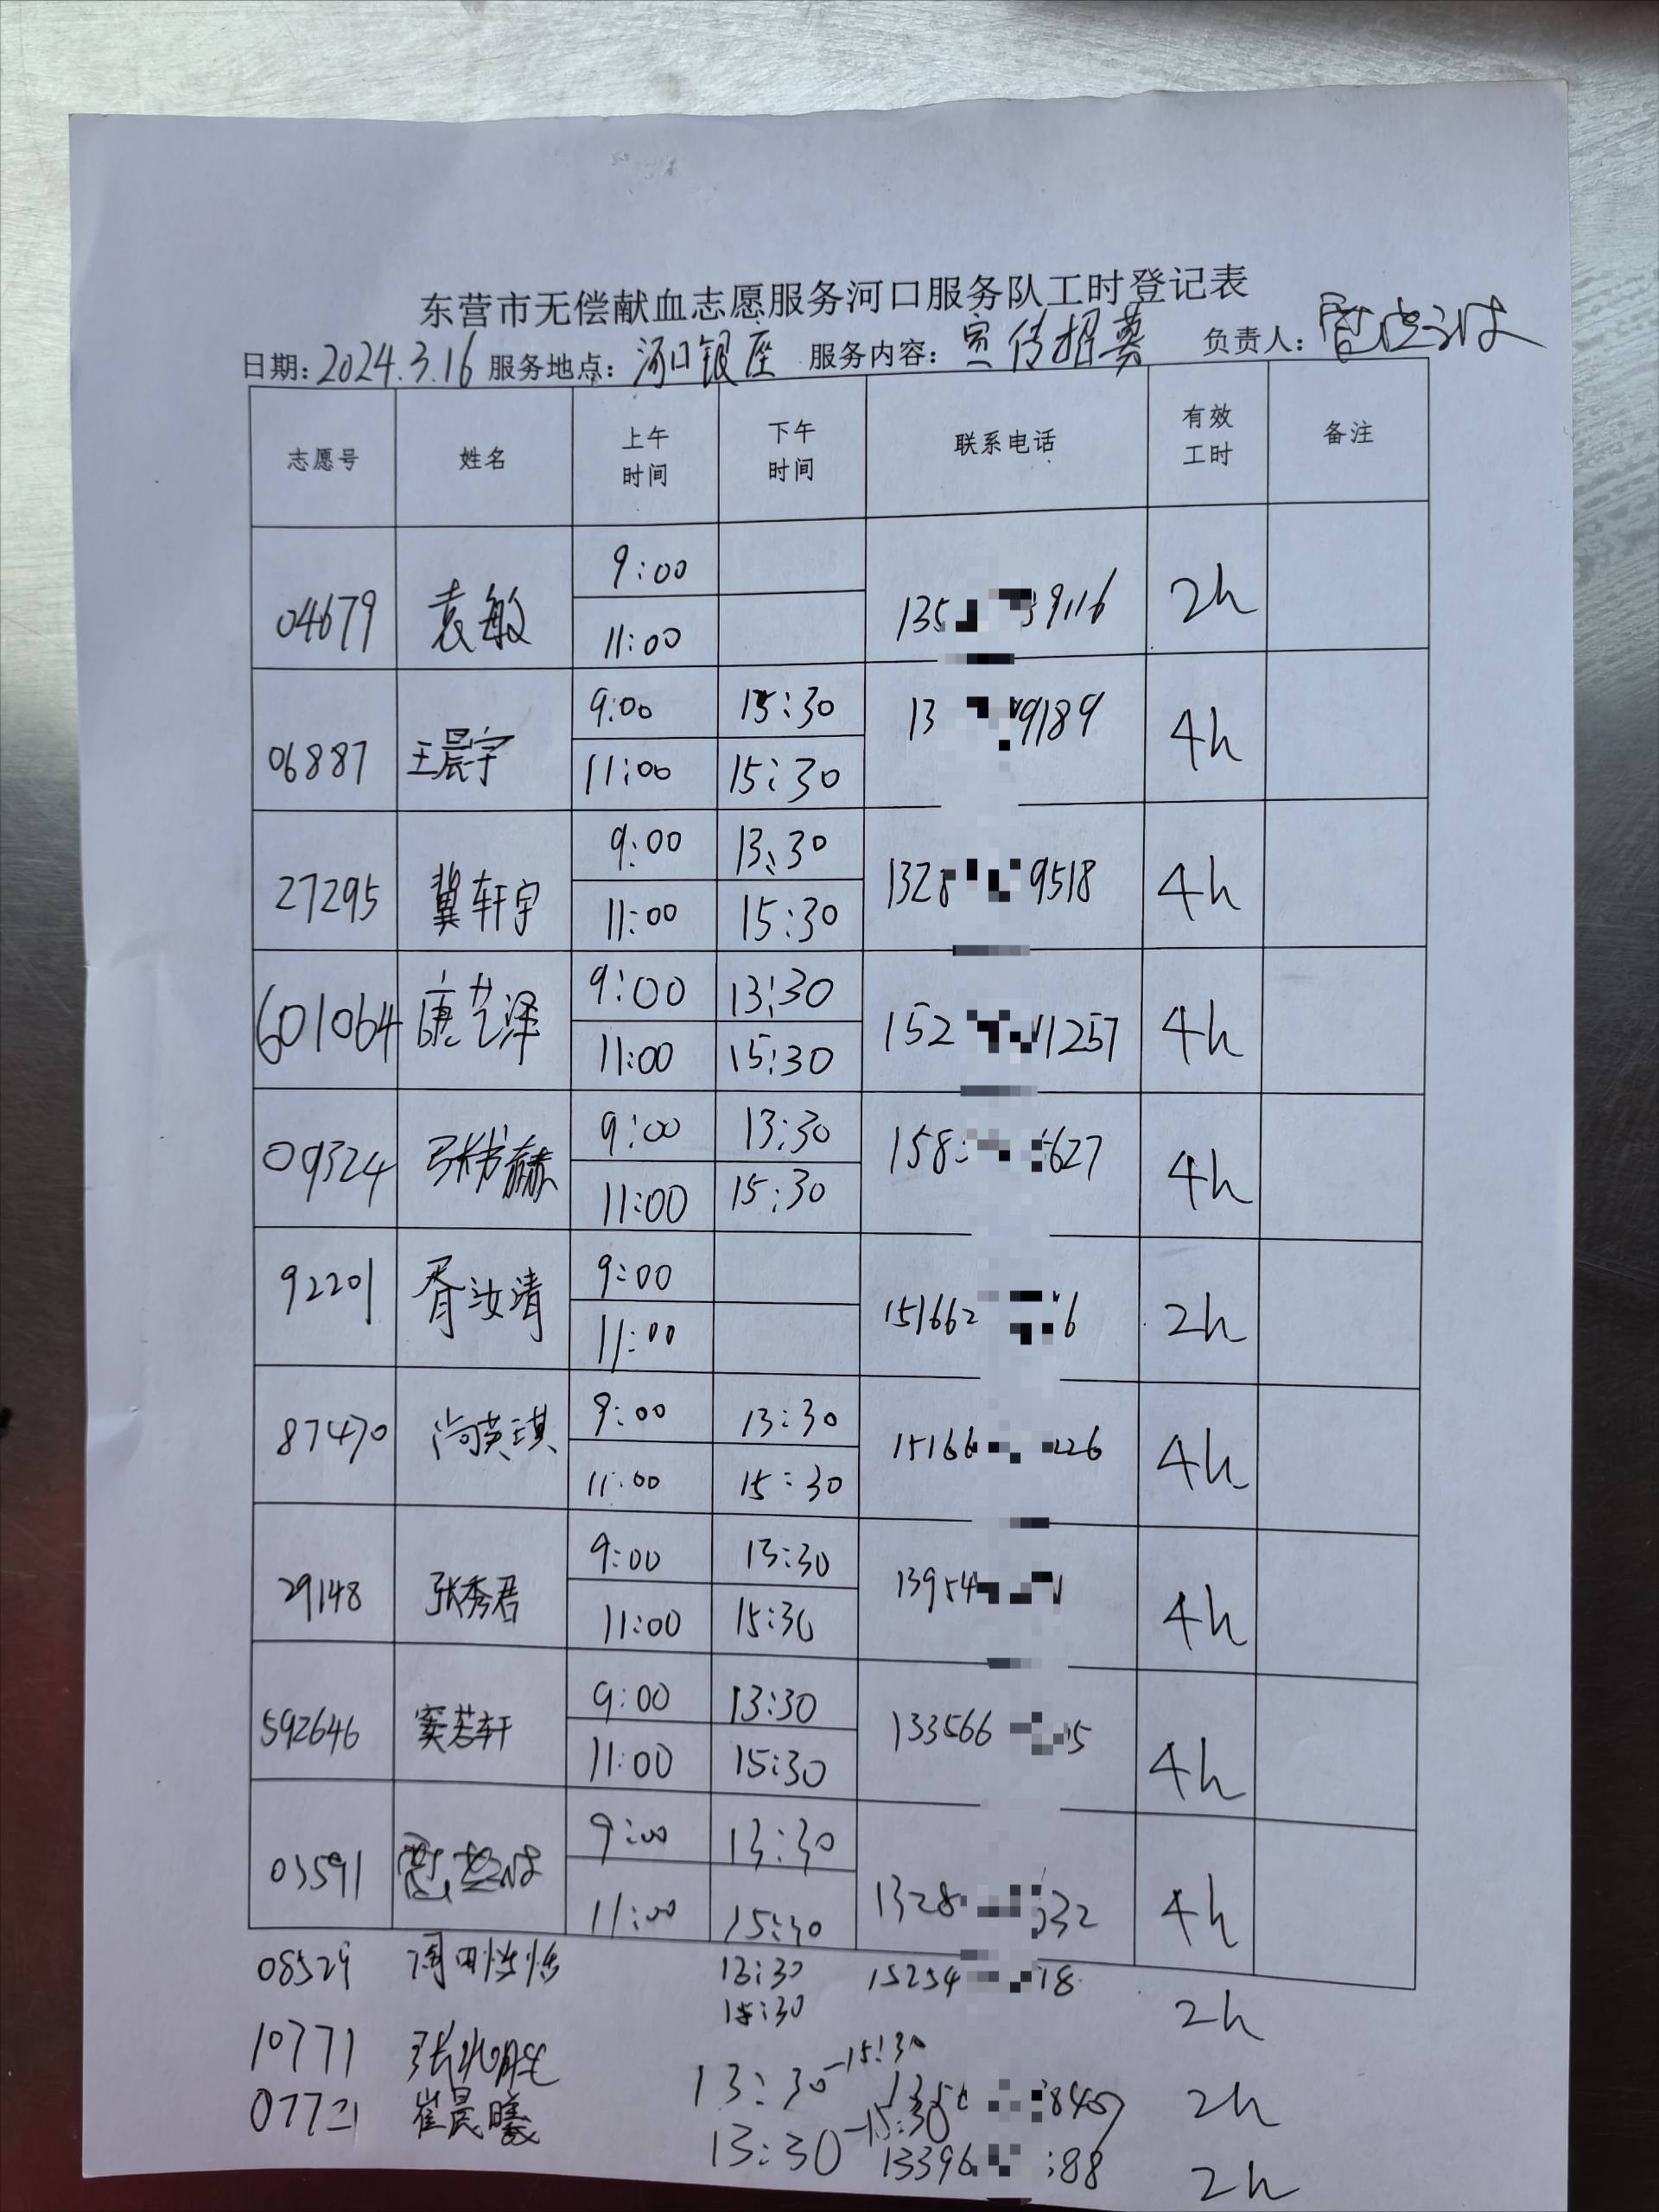 东营市无偿献血志愿服务河口服务队工时登记表
日期: 2024.3.16 服务地点: 河口银座 服务内容: 宣传招募 负责人:
志愿号 姓名 上午时间 下午时间 联系电话 有效工时 备注
04679 袁敏 9:00 11:00 135 9116 2h
06887 王晨宇 9:00 15:30 11:00 15:30 13 9189 4h
27295 冀轩宇 9:00 13:30 11:00 15:30 1328 9518 4h
601064 唐艺泽 9:00 13:30 11:00 15:30 152 1257 4h
09324 9:00 13:30 11:00 15:30 158 627 4h
92201 胥汝清 9:00 11:00 151662 6 2h
87470 尚英琪 9:00 13:30 11:00 15:30 15166 226 4h
29148 张秀君 9:00 13:30 11:00 15:30 13954 4h
592646 窦若轩 9:00 13:30 11:00 15:30 133566 5 4h
03591 9:00 13:30 11:00 15:30 1328 32 4h
08529 13:30 15:30 15254 18 2h
10771 13:30-15:30 2h
崔晨曦 13:30-15:30 13396 88 2h